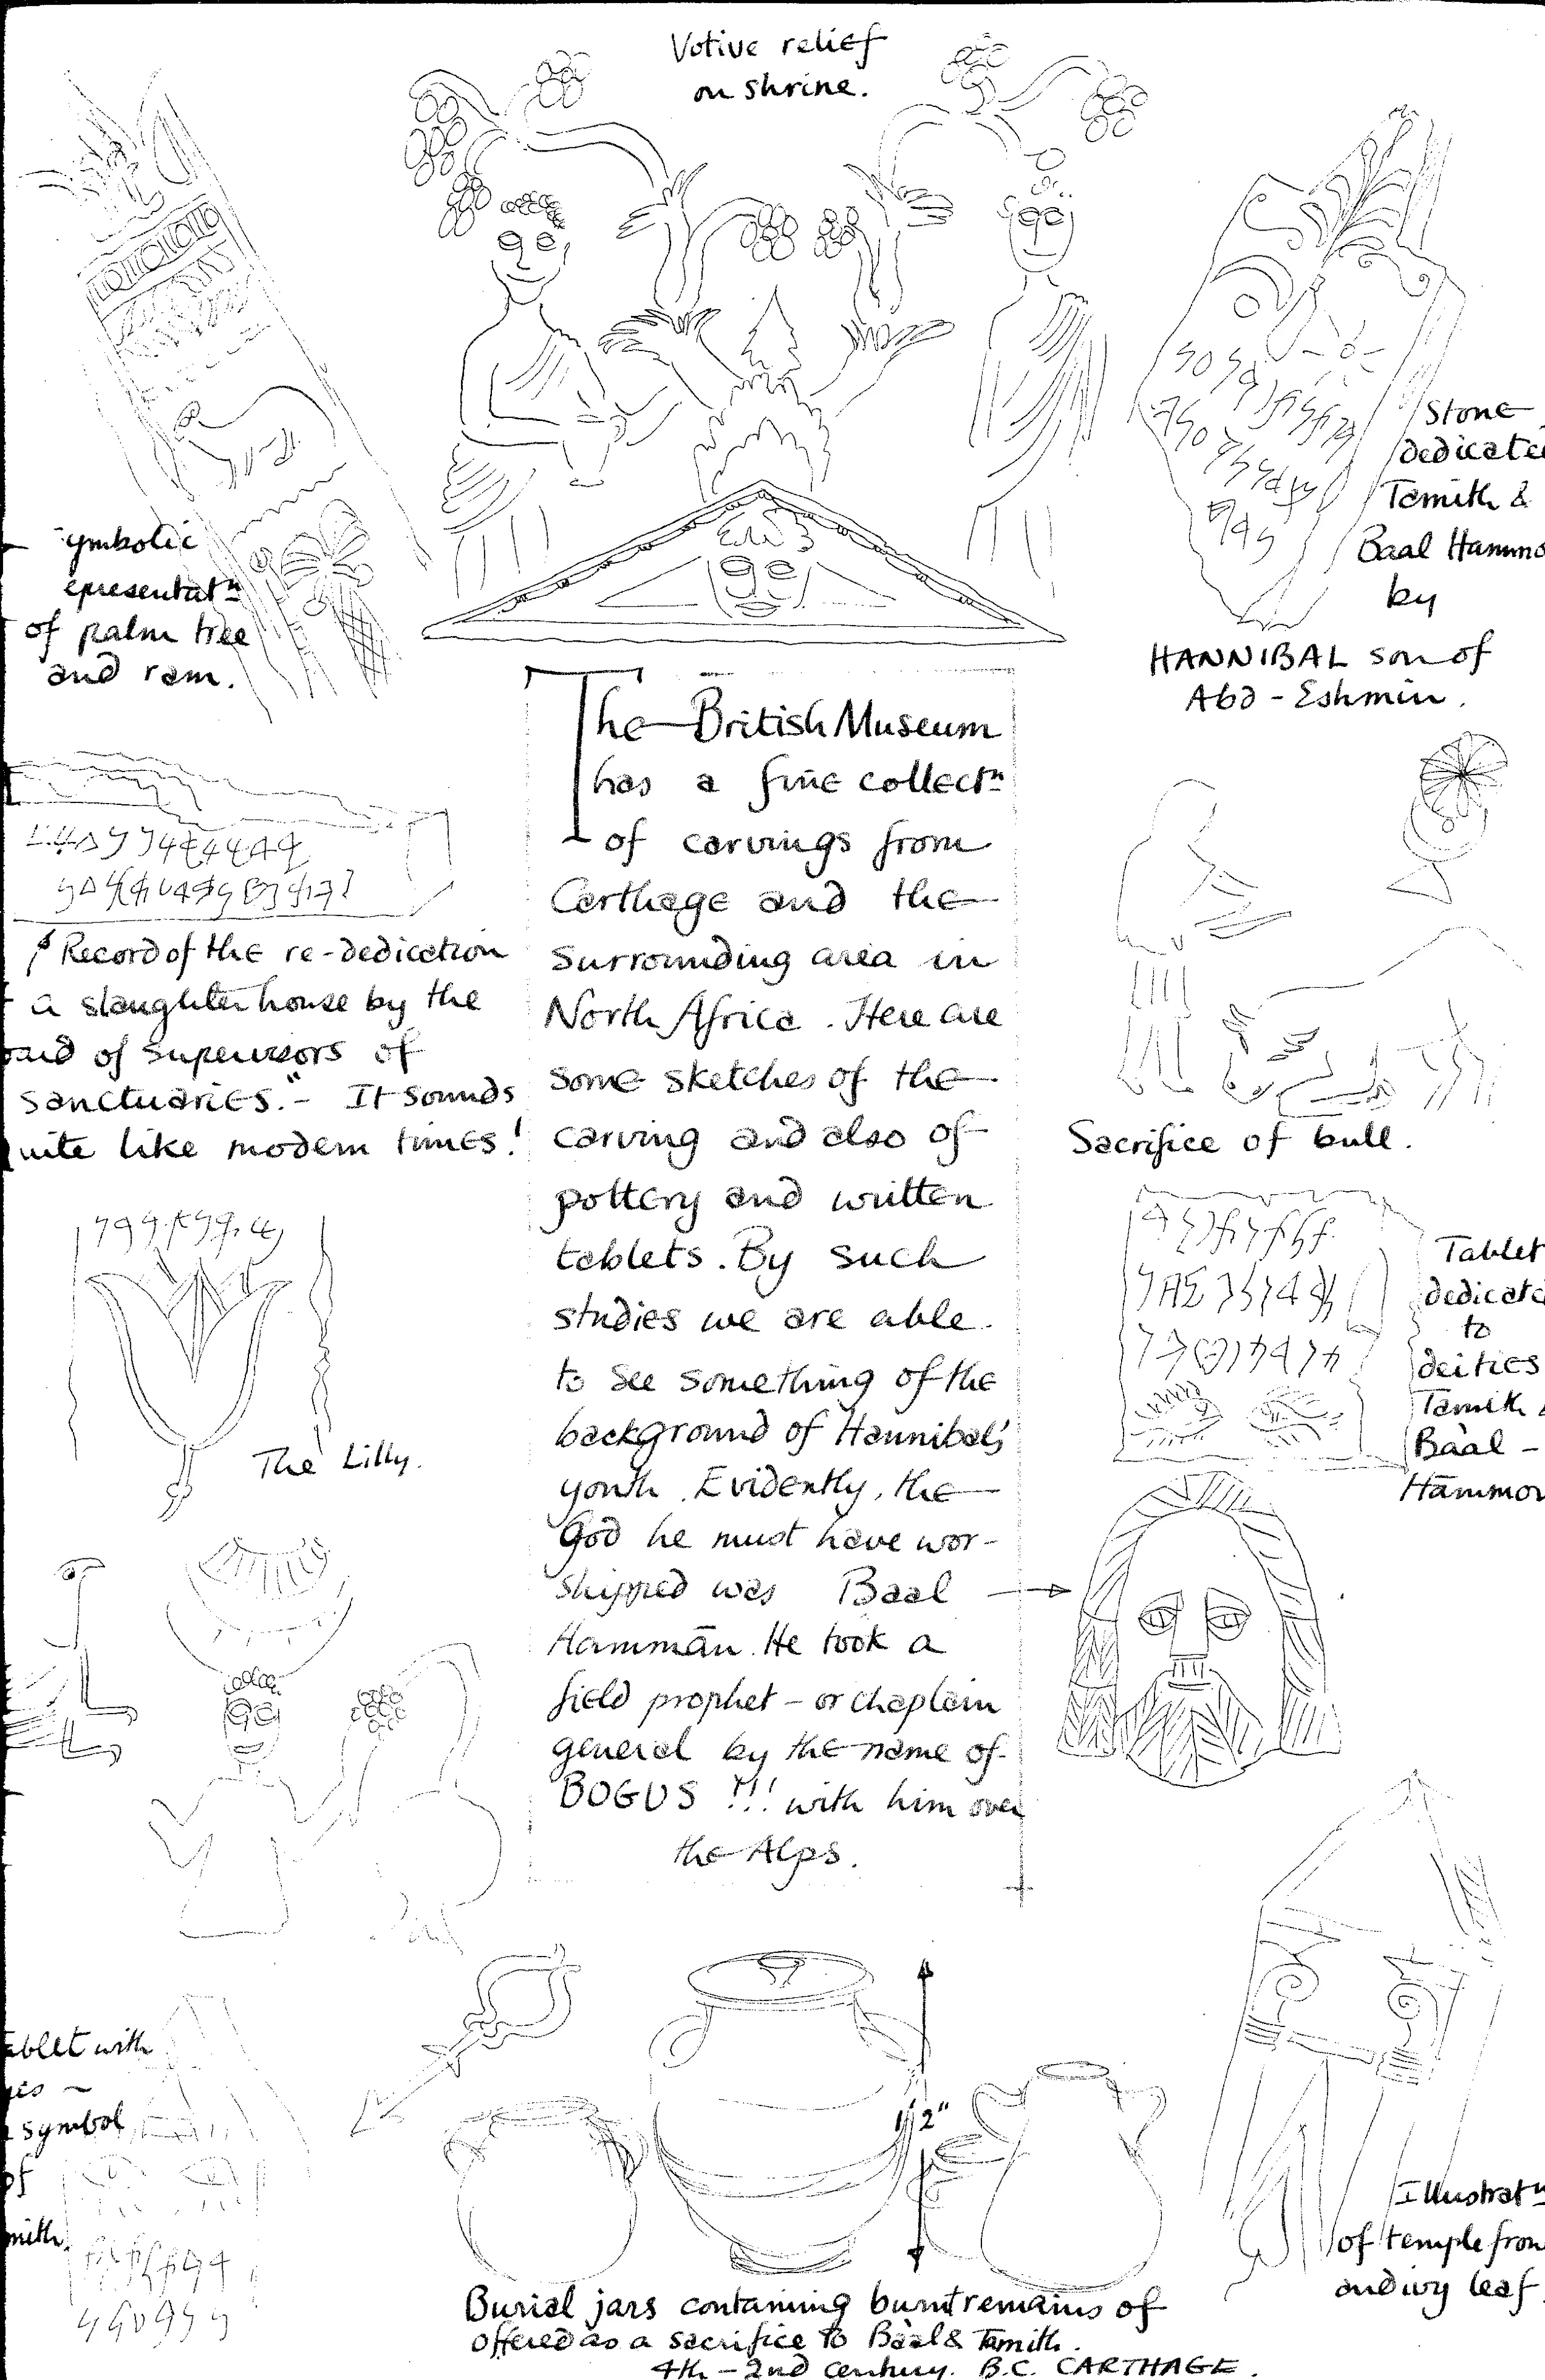 Votive relief
on shrine.
ymbolic
epresentatn
of palm tree
and ram.
Stone
dedicate
Tamith &
Baal Hammo
by
HANNIBAL son of
Abd - Eshmin.
The British Museum
has a fine collectn
of carvings from
Carthage and the
surrounding area in
North Africa. Here are
some sketches of the
carving and also of
pottery and written
tablets. By such
studies we are able
to see something of the
background of Hannibal's
youth. Evidently, the
God he must have wor-
shipped was Baal
Hammān. He took a
field prophet - or chaplain
general by the name of
BOGUS !!! with him over
the Alps.
"Record of the re-dedication
a slaughter house by the
oard of Supervisors of
Sanctuaries." - It sounds
uite like modern times!
The Lilly.
Sacrifice of bull.
Tablet
dedicate
to
deities
Tamith &
Baal -
Hammon
ablet with
symbol
of
mith.
1/2"
Illustratn
of temple fron
and ivy leaf
Burial jars containing burnt remains of
offered as a sacrifice to Baal & Tamith.
4th - 2nd century. B.C. CARTHAGE.